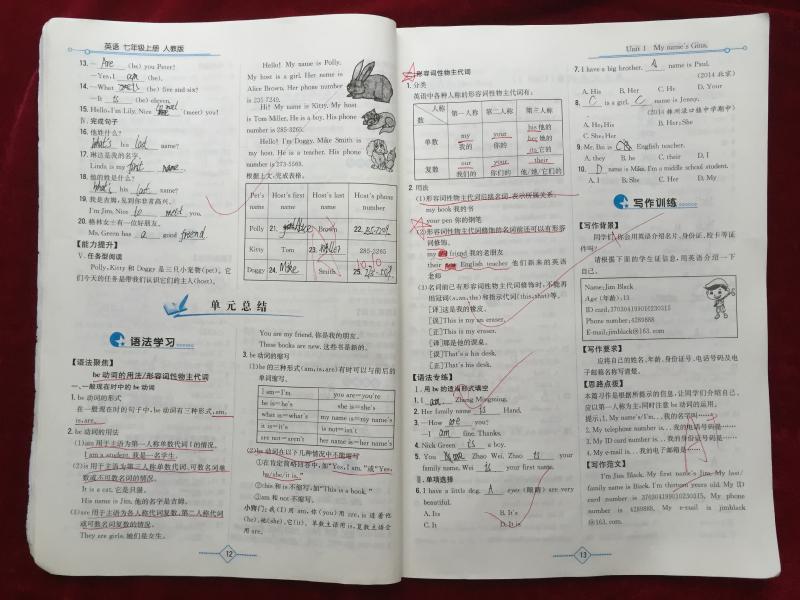 英语 七年级上册 人教版
13. —Are (be) you Peter?
—Yes, I am (be).
14. —What (be) five and six?
—It is (be) eleven.
15. Hello, I'm Lily. Nice to meet (meet) you!
Ⅳ. 完成句子
16. 他姓什么?
What's his last name?
17. 琳达是我的名字。
Linda is my first name.
18. 他的姓是什么?
What's his last name?
19. 我是吉姆,见到你非常高兴。
I'm Jim. Nice to meet you.
20. 格林女士有一位好朋友。
Ms. Green has a good friend.
【能力提升】
Ⅴ. 任务型阅读
Polly、Kitty 和 Doggy 是三只小宠物(pet)。它
们今天的任务是带我们认识它们的主人(host)。
Hello! My name is Polly.
My host is a girl. Her name is
Alice Brown. Her phone number
is 235-7249.
Hi! My name is Kitty. My host
is Tom Miller. He is a boy. His phone
number is 285-3265.
Hello! I'm Doggy. Mike Smith is
my host. He is a teacher. His phone
number is 273-5563.
根据上文,完成表格。
Pet's name Host's first name Host's last name Host's phone number
Polly 21. Brown 22.
Kitty Tom 23. Miller 285-3265
Doggy 24. Mike Smith 25.
单元总结
语法学习
【语法聚焦】
be 动词的用法/形容词性物主代词
一、一般现在时中的 be 动词
1. be 动词的形式
在一般现在时的句子中,be 动词有三种形式,am,
is,are。
2. be 动词的用法
(1)am 用于主语为第一人称单数代词 I 的情况。
I am a student. 我是一名学生。
(2)is 用于主语为第三人称单数代词、可数名词单
数或不可数名词的情况。
It is a cat. 它是只猫。
His name is Jim. 他的名字是吉姆。
(3)are 用于主语为各人称代词复数、第二人称代词
或可数名词复数的情况。
They are girls. 她们是女生。
You are my friend. 你是我的朋友。
These books are new. 这些书是新的。
3. be 动词的缩写
(1)be 的三种形式(am,is,are)有时可以与前后的
单词缩写。
I am=I'm you are=you're
he is=he's she is=she's
what is=what's my name is=my name's
it is=it's is not=isn't
are not=aren't her name is=her name's
(2)be 动词在以下几种情况中不能缩写
①在肯定简略回答中,如“Yes,I am.”或“Yes,
he/she/it is.”
②this 和 is 不缩写,如“This is a book.”
③am 和 not 不缩写。
小窍门:我(I)用 am,你(you)用 are,is 连着他
(he)、她(she)、它(it)。单数主语用 is,复数主语全
用 are。
12
Unit 1 My name's Gina.
二、形容词性物主代词
1. 分类
英语中各种人称的形容词性物主代词有:
人称 数 第一人称 第二人称 第三人称
单数 my 我的 your 你的 his 他的 her 她的 its 它的
复数 our 我们的 your 你们的 their 他/她/它们的
2. 用法
(1)形容词性物主代词后接名词,表示所属关系。
my book 我的书
your pen 你的钢笔
(2)形容词性物主代词修饰的名词前还可以有形容
词修饰。
my friend 我的老朋友
their English teacher 他们新来的英语
老师
(3)名词前已有形容词性物主代词修饰时,不能再
用冠词(a,an,the)和指示代词(this,that)等。
[译]这是我的橡皮。
[误]This is my an eraser.
[正]This is my eraser.
[译]那是他的课桌。
[误]That's a his desk.
[正]That's his desk.
【语法专练】
Ⅰ. 用 be 的适当形式填空
1. I am Zhang Mingming.
2. Her family name is Hand.
3. —How are you?
—I am fine. Thanks.
4. Nick Green is a boy.
5. You are Zhao Wei. Zhao is your
family name. Wei is your first name.
Ⅱ. 单项选择
6. I have a little dog. A eyes (眼睛) are very
beautiful.
A. Its B. It's
C. It D. It is
7. I have a big brother. A name is Paul.
(2014 北京)
A. His B. Her C. He D. Your
8. C is a girl. C name is Jenny.
A. He;His B. Her;She
C. She;Her
9. Mr. Bai is English teacher.
A. they B. he C. their D. I
10. D name is Mike. I'm a middle school student.
A. His B. Her C. I D. My
写作训练
【写作背景】
同学们,你会用英语介绍名片、身份证、校卡等证
件吗?
请根据下面的学生证信息,用英语介绍一下
自己。
Name:Jim Black
Age (年龄):13
ID card:370304199010230315
Phone number:4289888
E-mail:jimblack@163.com
【写作要求】
应将自己的姓名、年龄、身份证号、电话号码及电
子邮箱名称写清楚。
【思路点拨】
本篇习作是根据所提示的信息,让同学们介绍自己,
应以第一人称为主,同时注意 be 动词的运用。
提示:1. My name's/I'm… 我的名字叫……
2. My telephone number is… 我的电话号码是……
3. My ID card number is… 我的身份证号码是……
4. My e-mail is… 我的电子邮箱是……
【写作范文】
I'm Jim Black. My first name's Jim. My last/
family name is Black. I'm thirteen years old. My ID
card number is 370304199010230315. My phone
number is 4289888. My e-mail is jimblack
@163.com.
13